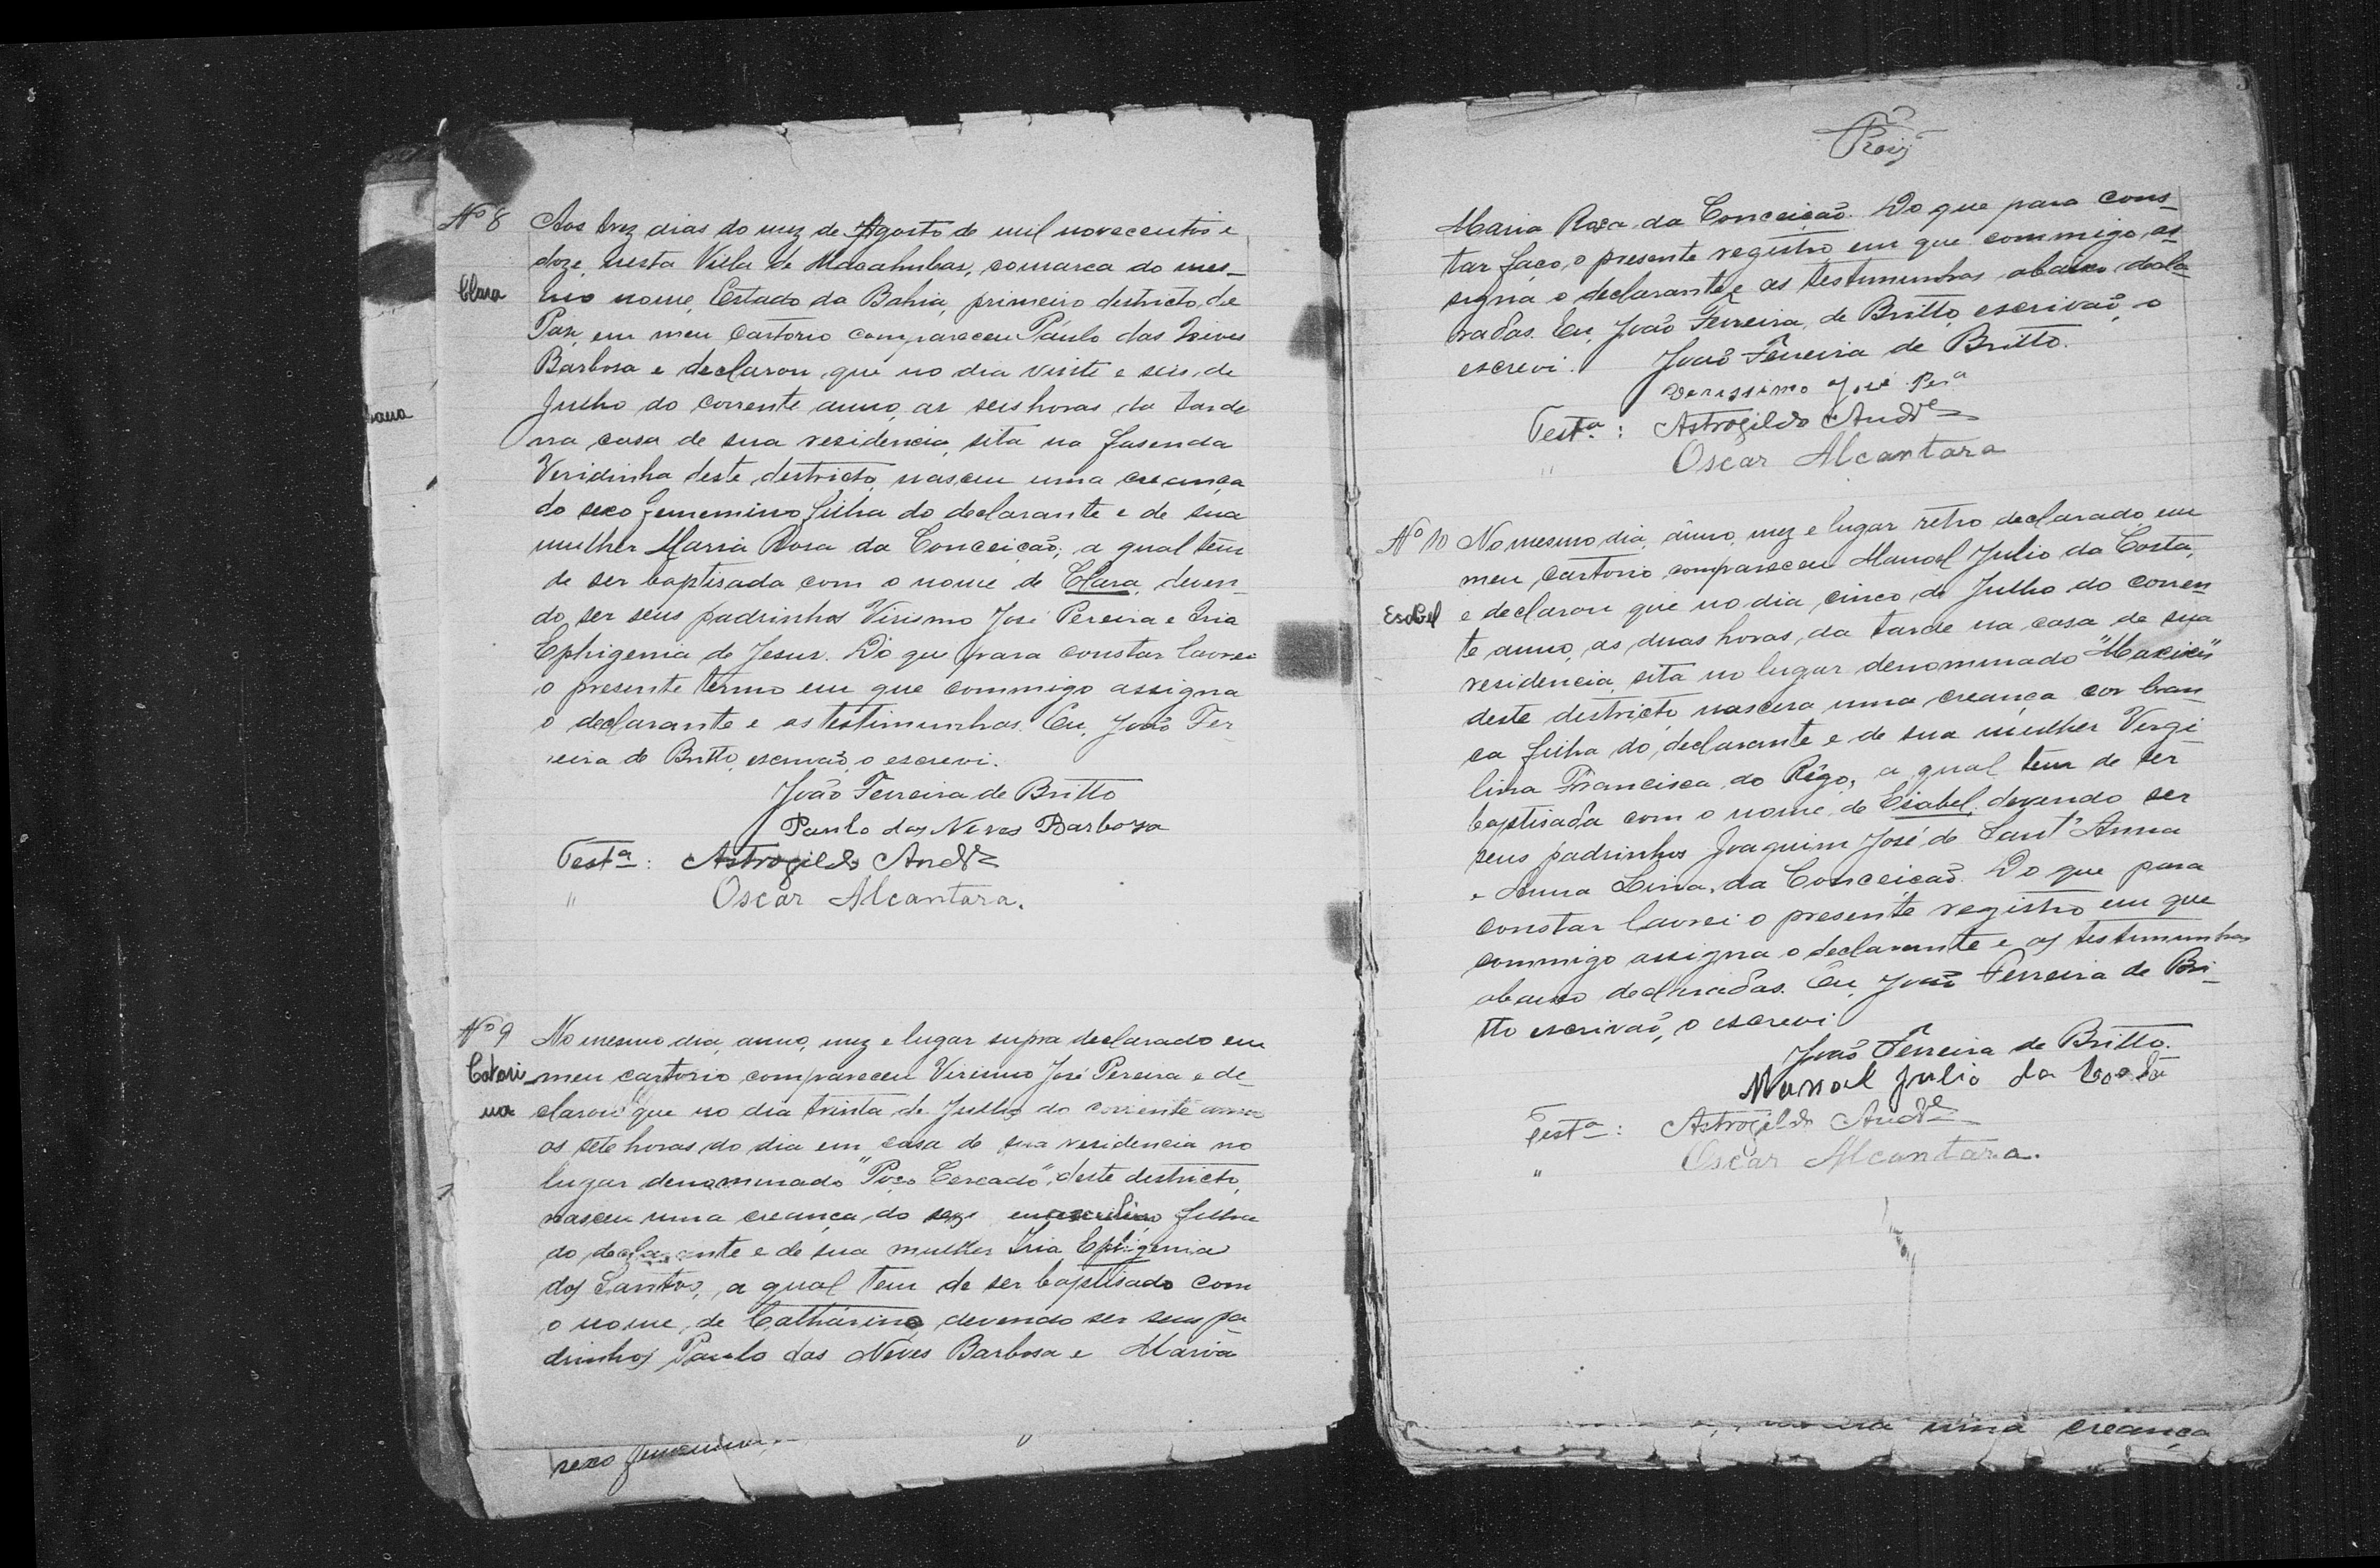 Nº 8 Aos trez dias do mez de Agosto de mil novecentos e
doze, nesta Villa de Macahubas, comarca do mes-
Clara mo nome, Estado da Bahia, primeiro destricto de
Paz, em meu Cartorio compareceu Paulo das Neves
Barbosa e declarou que no dia vinte e seis de
Julho do corrente anno, as seis horas da tarde
na casa de sua residencia, sita na fasenda
Veridinha deste destricto, nasceu uma creança
do sexo femenino filha do declarante e de sua
mulher Maria Rosa da Conceição; a qual tem
de ser baptisada com o nome de Clara, deven-
do ser seus padrinhos Virismo José Pereira e Iria
Ephigenia de Jesus. Do que para constar lavrei
o presente termo em que commigo assigna
o declarante e as testimunhas. Eu, João Fer
reira de Britto, escrivão, o escrevi.
João Ferreira de Britto
Paulo das Neves Barboza
Testª: Astrogildo Andᵉ
" Oscar Alcantara.
Nº 9 No mesmo dia, anno, mez e lugar supra declarado em
Catari meu cartorio compareceu Virismo José Pereira e de-
na clarou que no dia trinta de Julho do corrente anno
as sete horas do dia em casa de sua residencia no
lugar denominado "Poço Cercado", deste destricto,
nasceu uma creança do sexo masculino filha
do declarante e de sua mulher Iria Ephigenia
dos Santos, a qual tem de ser baptisado com
o nome de Catharina devendo ser seus pa
drinhos Paulo das Neves Barbosa e Maria
sexo femenino
"
Maria Roza da Conceição. Do que para cons-
tar faço o presente registro em que commigo as
signa o declarante e as testimunhas abaixo decla-
radas. Eu, João Ferreira de Britto, escrivão, o
escrevi. João Ferreira de Britto.
Verissimo José Perª
Testª: Astrogildo Andᵉ
" Oscar Alcantara
Nº 10 No mesmo dia, anno, mez e lugar retro declarado em
meu cartorio compareceu Manoel Julio da Costa,
Esabel e declarou que no dia cinco de Julho do corren-
te anno, as duas horas da tarde na casa de sua
residencia, sita no lugar denominado "Maxixi"
deste destricto nascera uma creança cor bran
ca filha do declarante e de sua mulher Vergi
lina Francisca do Rêgo, a qual tem de ser
baptisada com o nome de Esabel, devendo ser
seus padrinhos Joaquim José de Sant'Anna
e Anna Lina da Conceição. Do que para
constar lavrei o presente registro em que
commigo assigna o declarante e as testimunhas
abaixo declaradas. Eu, João Ferreira de Bri-
tto escrivão, o escrevi.
João Ferreira de Britto.
Manoel Julio da Costa
Testª: Astrogildo Andᵉ
" Oscar Alcantara.
uma creança